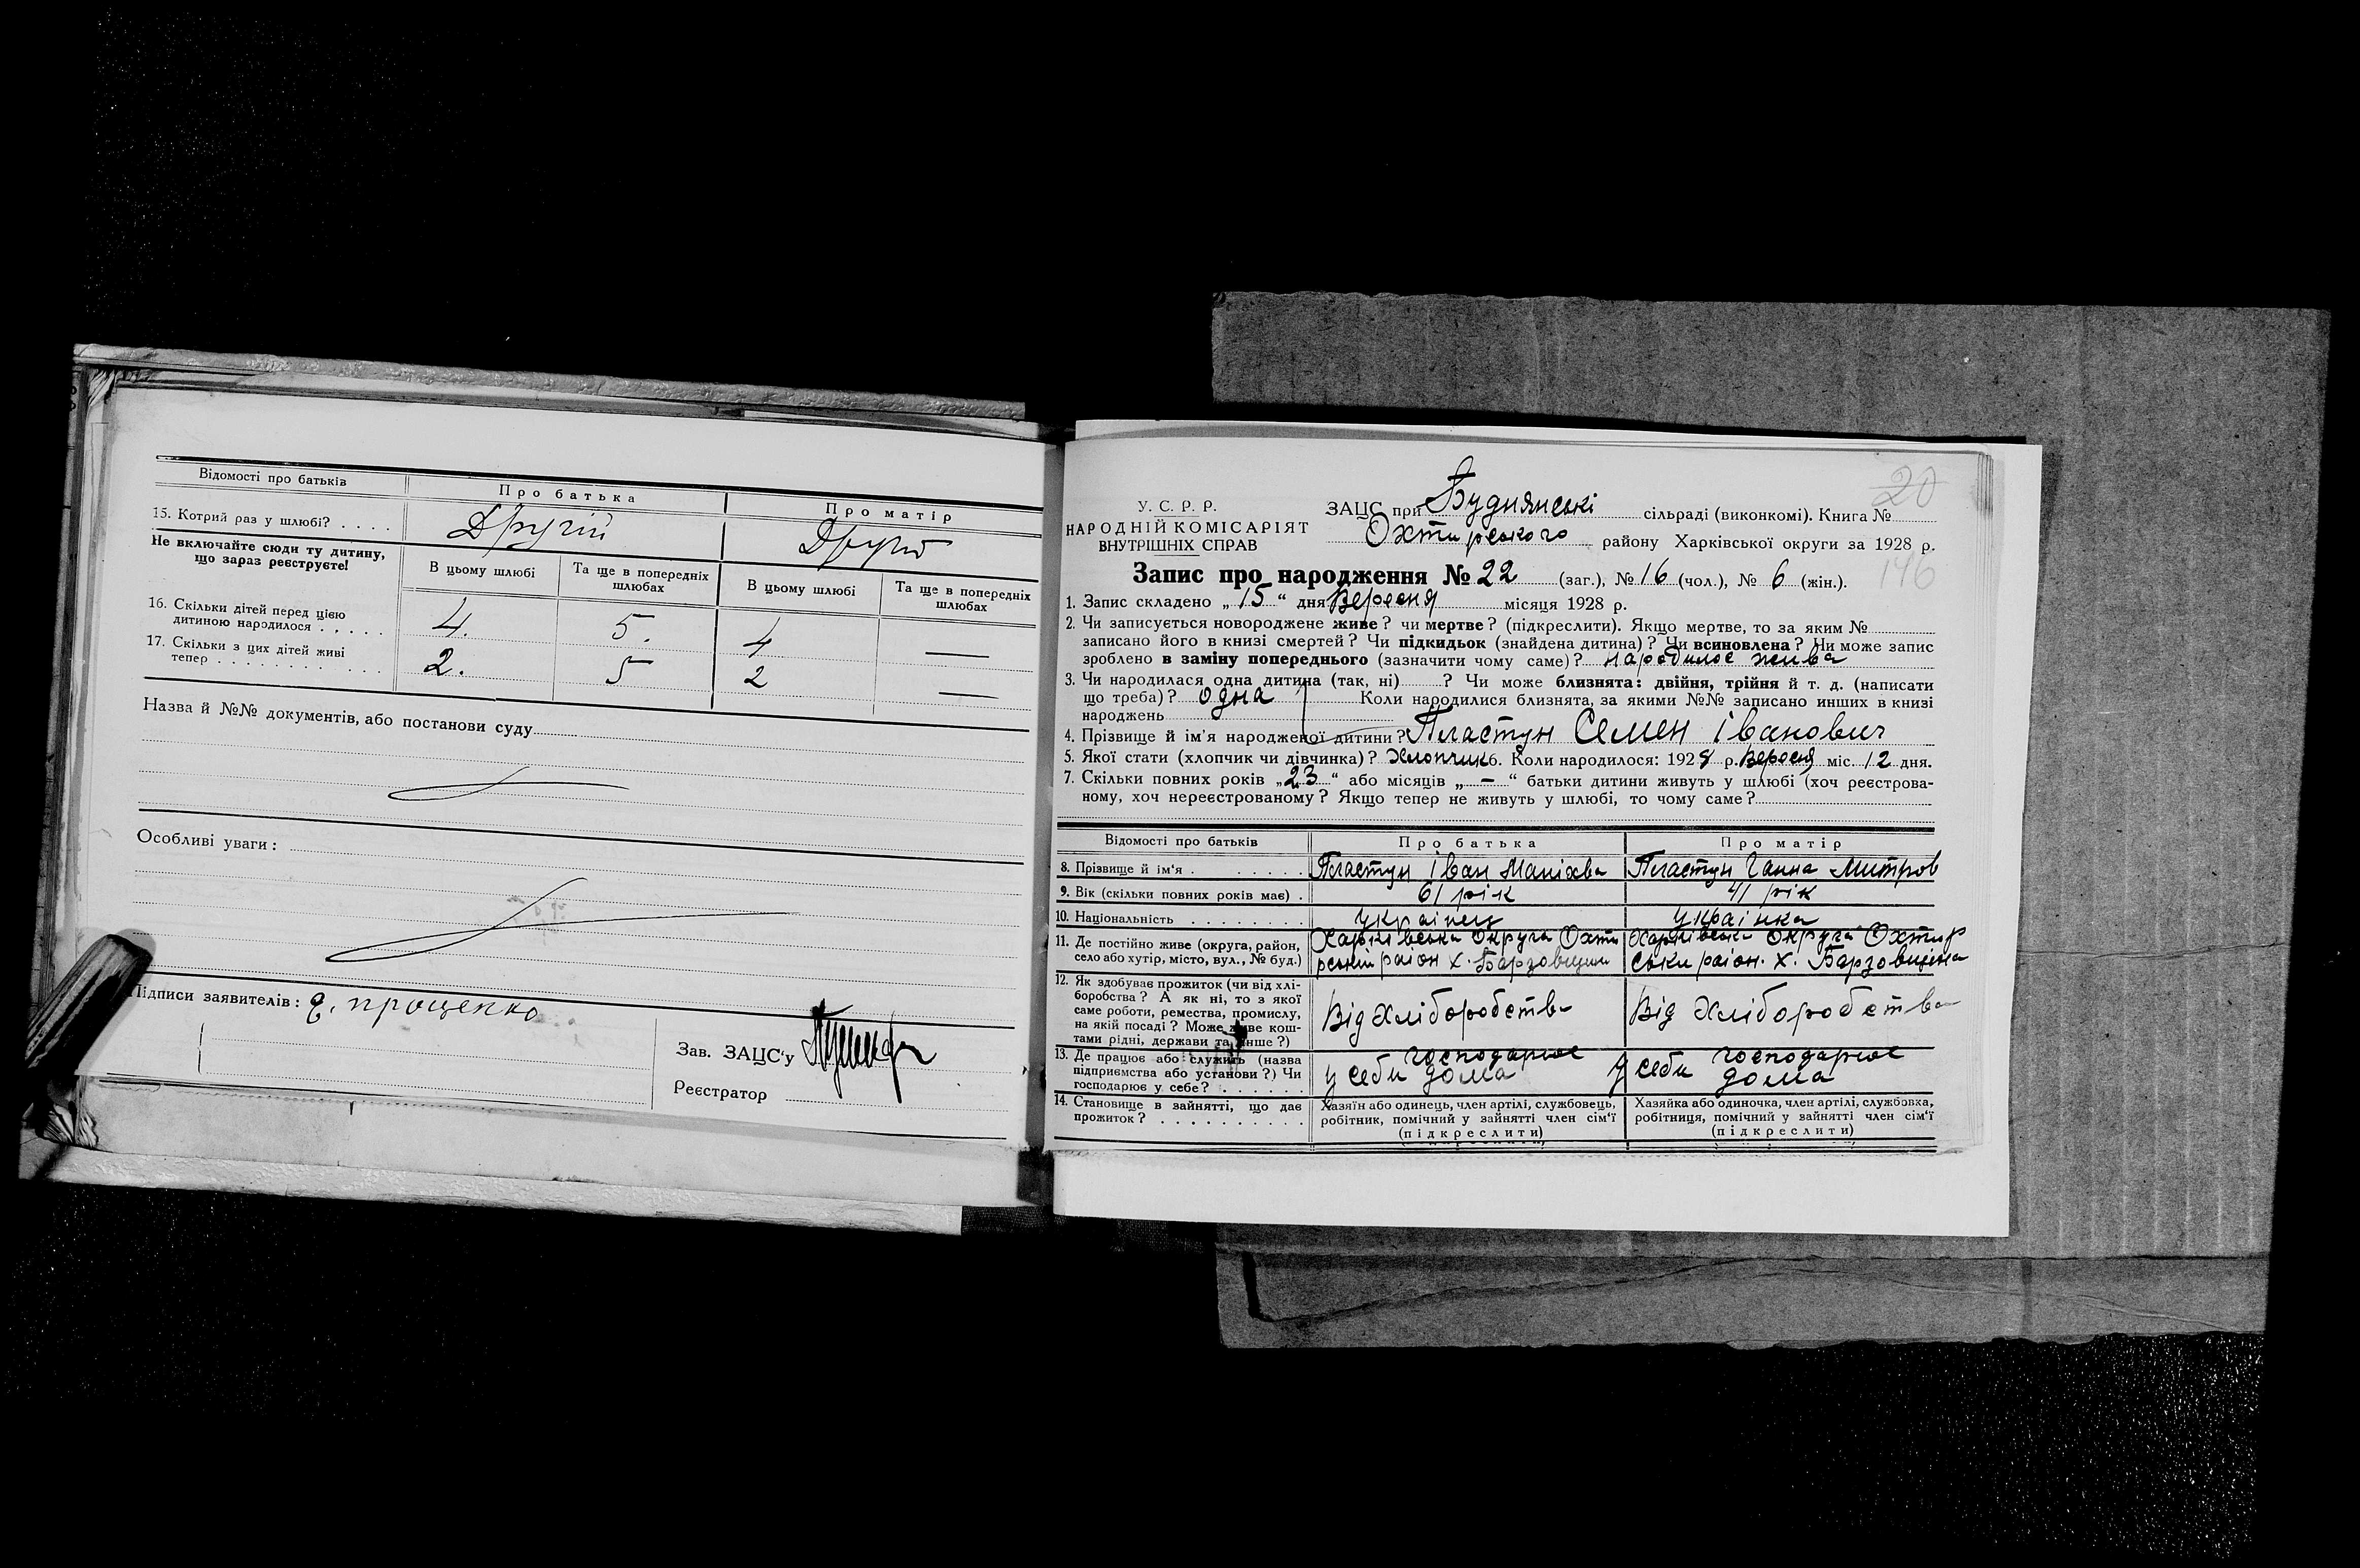 Відомості про батьків
Про батька
Про матір
15. Котрий раз у шлюбі? . . . .
Другій
Другі
Не включайте сюди ту дитину,
що зараз реєструєте!
В цьому шлюбі
Та ще в попередніх
шлюбах
В цьому шлюбі
Та ще в попередніх
шлюбах
16. Скільки дітей перед цією
дитиною народилося . . . . .
4. 5. 4 —
17. Скільки з цих дітей живі
тепер . . . . . . . . . . . .
2. 5 2 —
Назва й №№ документів, або постанови суду
Особливі уваги:
Підписи заявителів: проценко
Зав. ЗАЦС'у
Реєстратор
20
У. С. Р. Р.
НАРОДНІЙ КОМІСАРІЯТ
ВНУТРІШНІХ СПРАВ
ЗАЦС при Будянські сільраді (виконкомі). Книга №
Охтирського району Харківської округи за 1928 р.
146
Запис про народження № 22 (заг.), № 16 (чол.), № 6 (жін.).
1. Запис складено „ 15 “ дня Вересня місяця 1928 р.
2. Чи записується новороджене живе? чи мертве? (підкреслити). Якщо мертве, то за яким №
записано його в книзі смертей? Чи підкидьок (знайдена дитина)? Чи всиновлена? Чи може запис
зроблено в заміну попереднього (зазначити чому саме)? народилос жива
3. Чи народилася одна дитина (так, ні) ? Чи може близнята: двійня, трійня й т. д. (написати
що треба)? одна Коли народилися близнята, за якими №№ записано инших в книзі
народжень
4. Прізвище й ім'я народженої дитини? Пластун Семен Іванович
5. Якої стати (хлопчик чи дівчинка)? Хлопчик 6. Коли народилося: 1928 р. Вересня міс. 12 дня.
7. Скільки повних років „ 23 “ або місяців „ — “ батьки дитини живуть у шлюбі (хоч реєстрова-
ному, хоч нереєстрованому? Якщо тепер не живуть у шлюбі, то чому саме?
Відомості про батьків
Про батька
Про матір
8. Прізвище й ім'я . . . . . . . .
Пластун Іван
Пластун Ганна Митров
9. Вік (скільки повних років має) .
61 рік
41 рік
10. Національність . . . . . . . .
Українець
Українка
11. Де постійно живе (округа, район,
село або хутір, місто, вул., № буд.)
Харківська округа Охти
рський район х. Барзовщини
Харківська округа Охтир
ськи район. х. Барзовщина
12. Як здобуває прожиток (чи від хлі-
боробства? А як ні, то з якої
саме роботи, ремества, промислу,
на якій посаді? Може живе кош-
тами рідні, держави та инше?)
Від Хліборобства
Від Хліборобства
13. Де працює або служить (назва
підприємства або установи?) Чи
господарює у себе? . . . . . .
господарює
у себи дома
господарює
у себи дома
14. Становище в зайнятті, що дає
прожиток? . . . . . . . . . . .
Хазяїн або одинець, член артілі, службовець,
робітник, помічний у зайнятті член сім'ї
(підкреслити)
Хазяйка або одиночка, член артілі, службовка,
робітниця, помічний у зайнятті член сім'ї
(підкреслити)